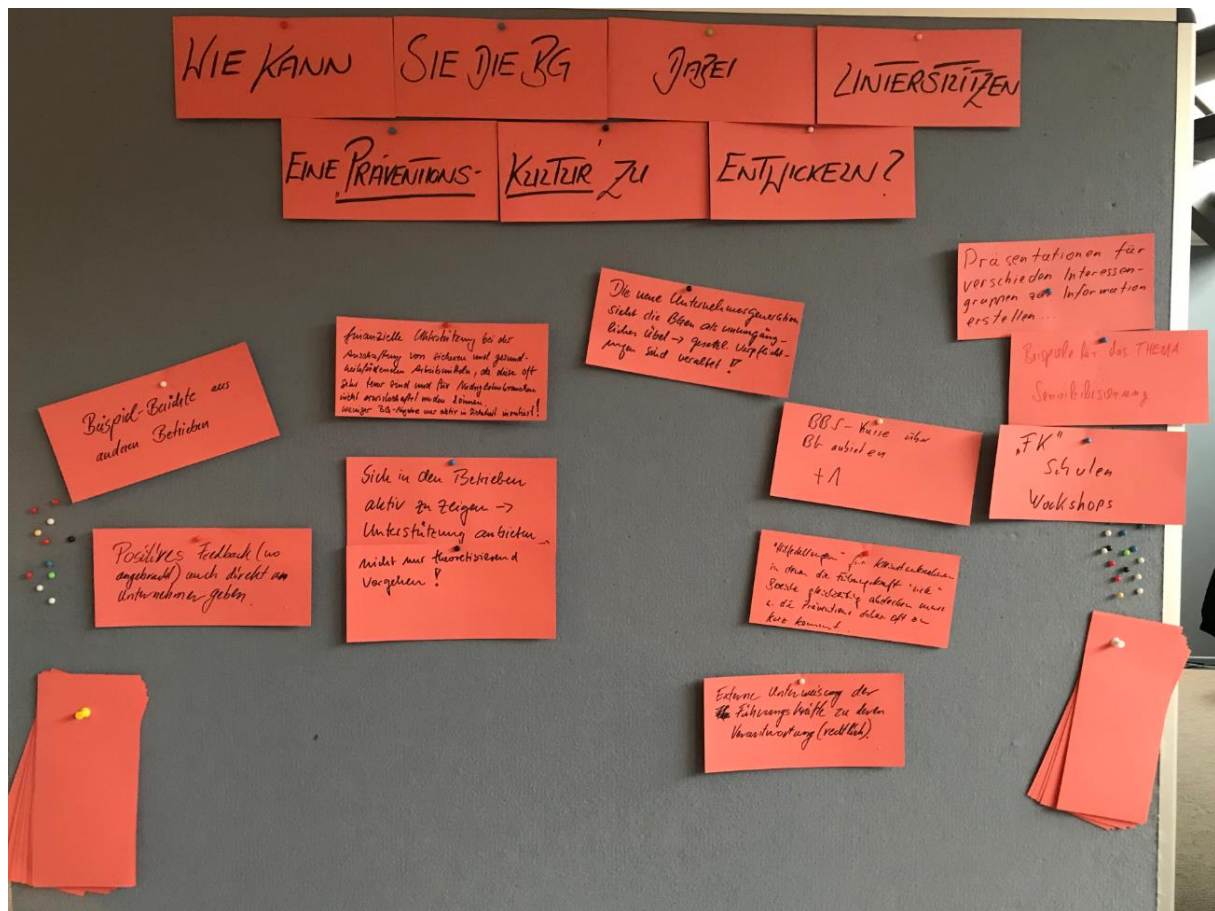 WIE KANN SIE DIE BG DABEI UNTERSTÜTZEN
EINE "PRÄVENTIONS- KULTUR" ZU ENTWICKELN?
Beispiel-Berichte aus
anderen Betrieben
Positives Feedback (wo
angebracht) auch direkt an
Unternehmer geben.
finanzielle Unterstützung bei der
Anschaffung von sicheren und gesund-
Arbeitsmitteln, da diese oft
sehr teuer sind und für
nicht erwirtschaftet werden können.
weniger BG-Abgabe wer aktiv in Sicherheit investiert!
Sich in den Betrieben
aktiv zu zeigen →
Unterstützung anbieten
nicht nur theoretisierend
Vorgehen!
Die neue Unternehmergeneration
sieht die BGen als unumgäng-
liches Übel → gesetzl. Verpflicht-
ungen sind veraltet!
BBS-Kurse über
BG anbieten
+1
"Hilfestellungen" für Kleinunternehmen
in denen die Führungskraft "viele"
gleichzeitig abdecken muss
u. die Prävention daher oft zu
kurz kommt.
Externe Unterweisung der
Führungskräfte zu deren
Verantwortung (rechtlich).
Präsentationen für
verschieden Interessen-
gruppen zur Information
erstellen...
Beispiele für das THEMA
Sensibilisierung
"FK"
Schulen
Workshops